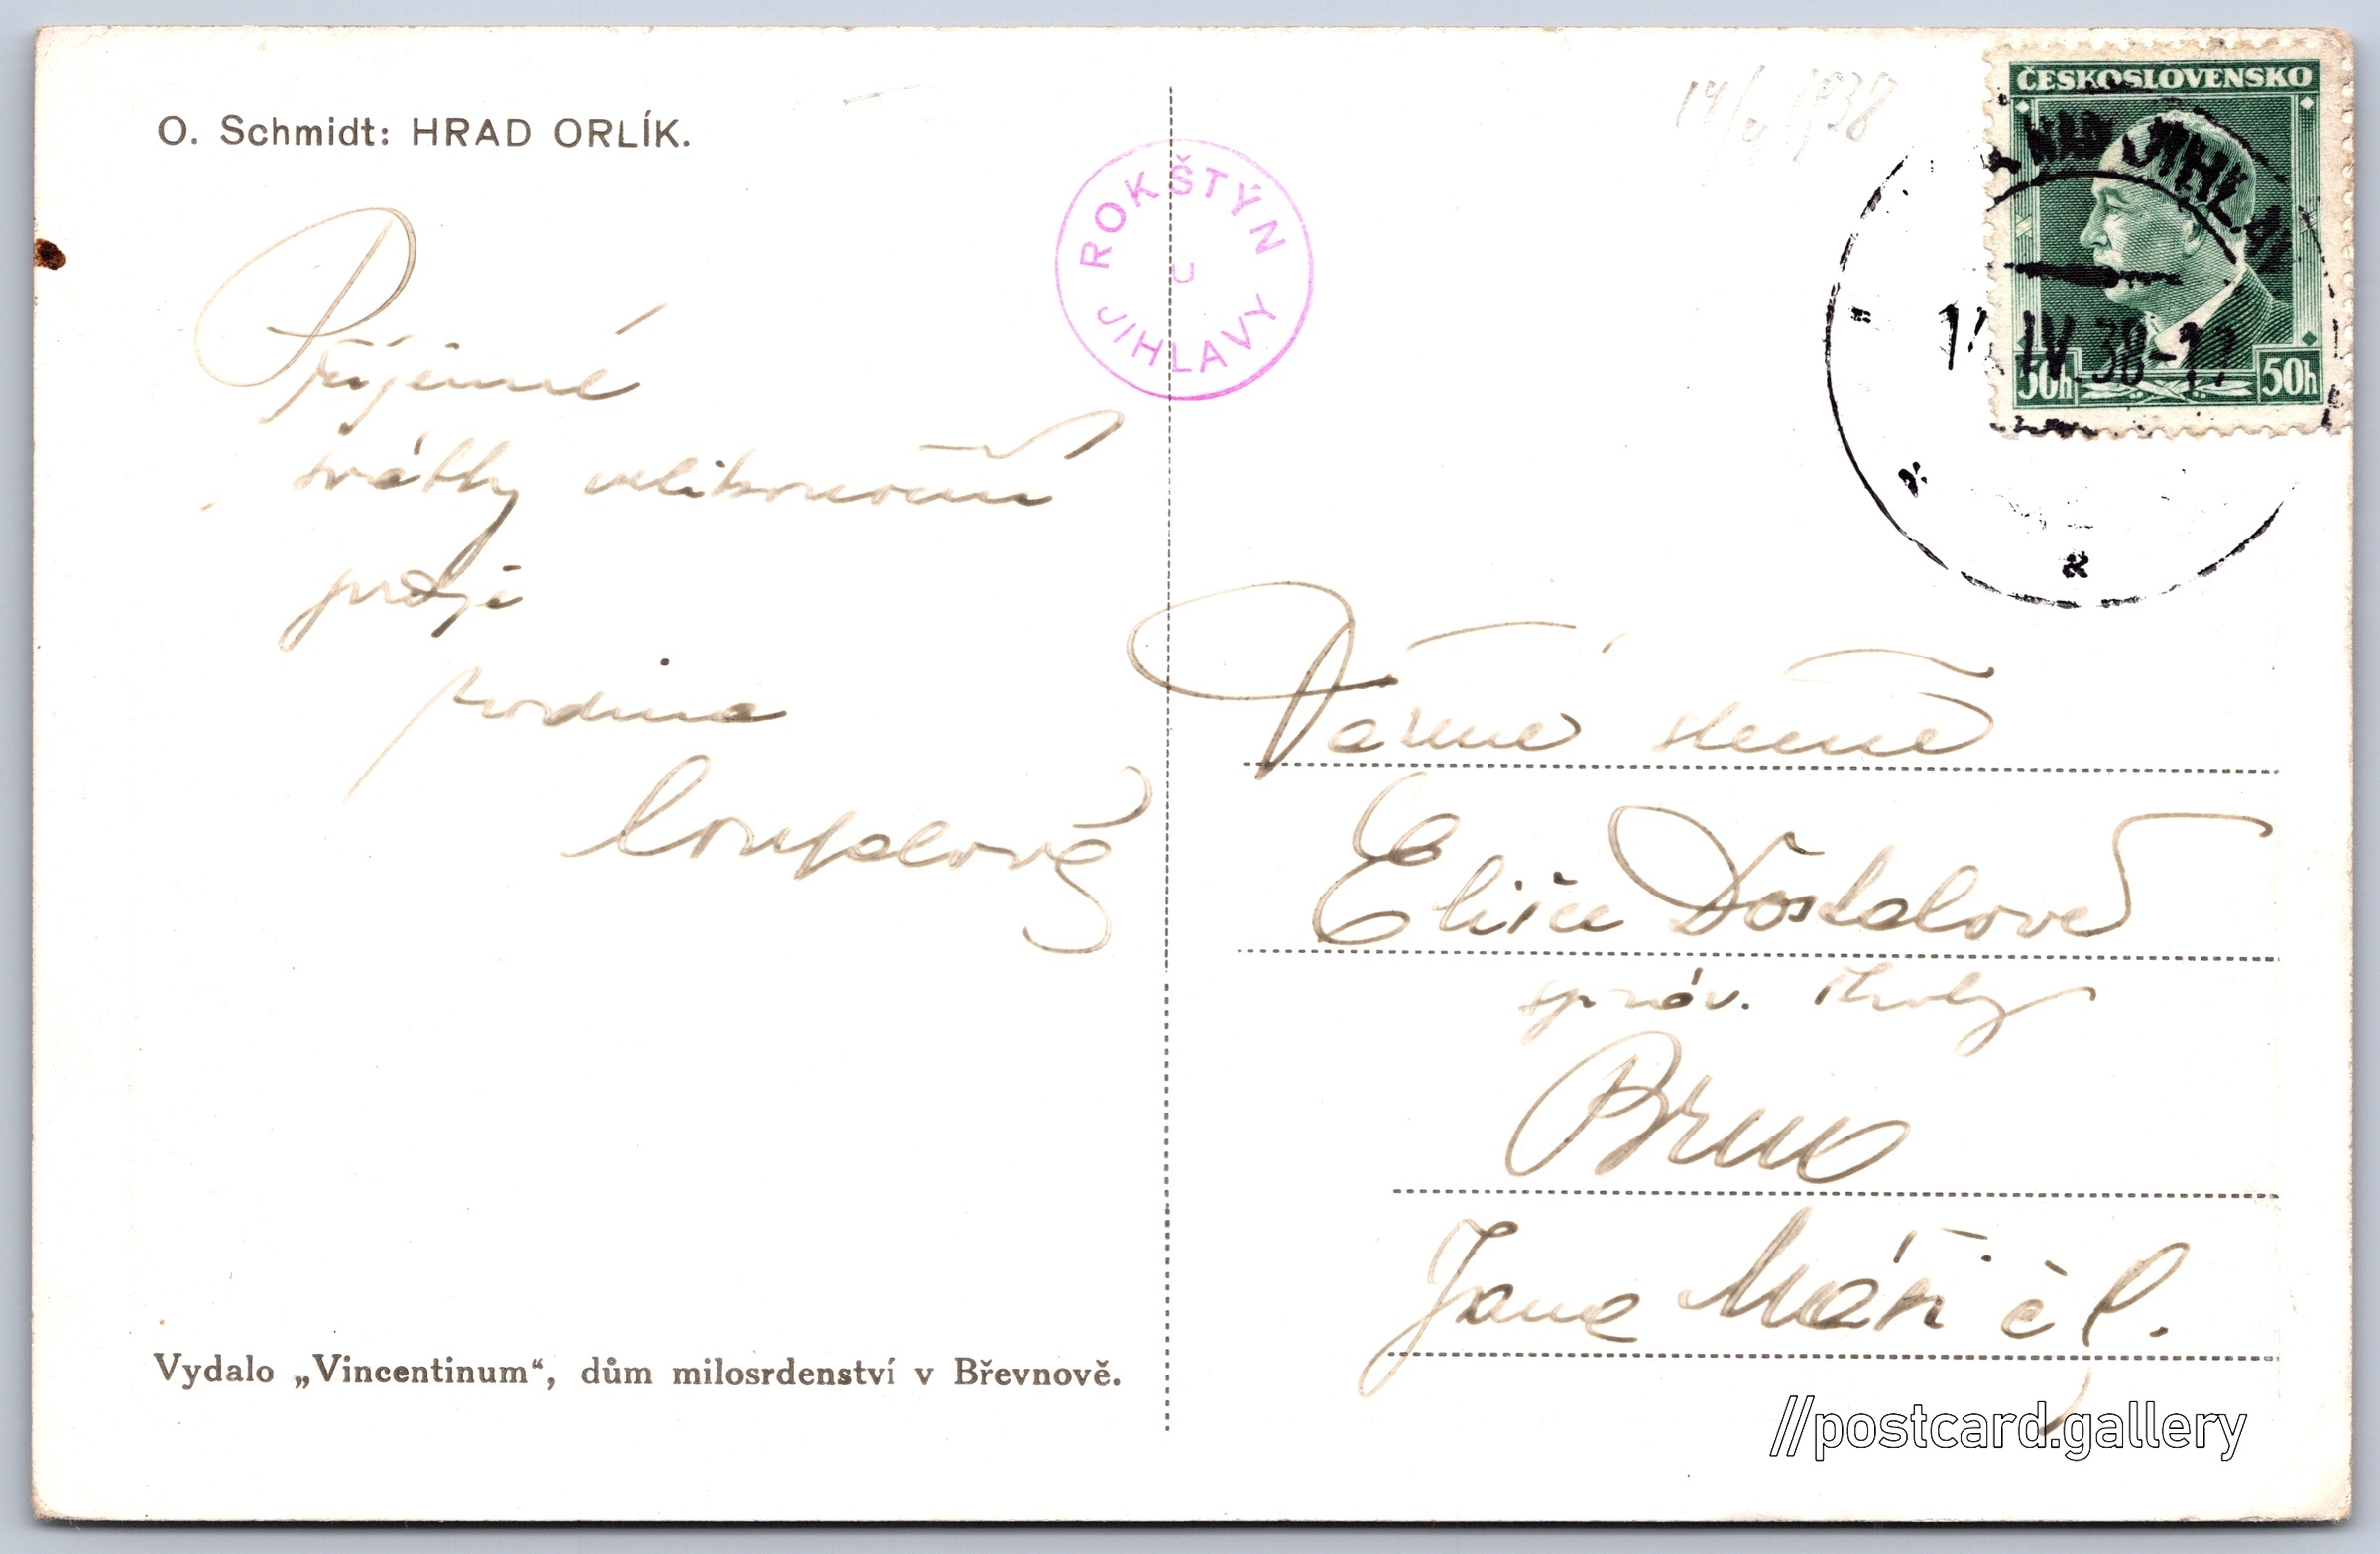 O. Schmidt: HRAD ORLÍK.
14/IV 1938
ČESKOSLOVENSKO
50h 50h
NAD JIHLAV
14.IV.38-17
ROKŠTÝN
U
JIHLAVY
Příjemné
svátky velikonoční
přeje
rodina
Coupalová
Vážené slečně
Elišce Dostalové
správ. školy
Brno
Jana Máši č 1.
Vydalo „Vincentinum“, dům milosrdenství v Břevnově.
//postcard.gallery